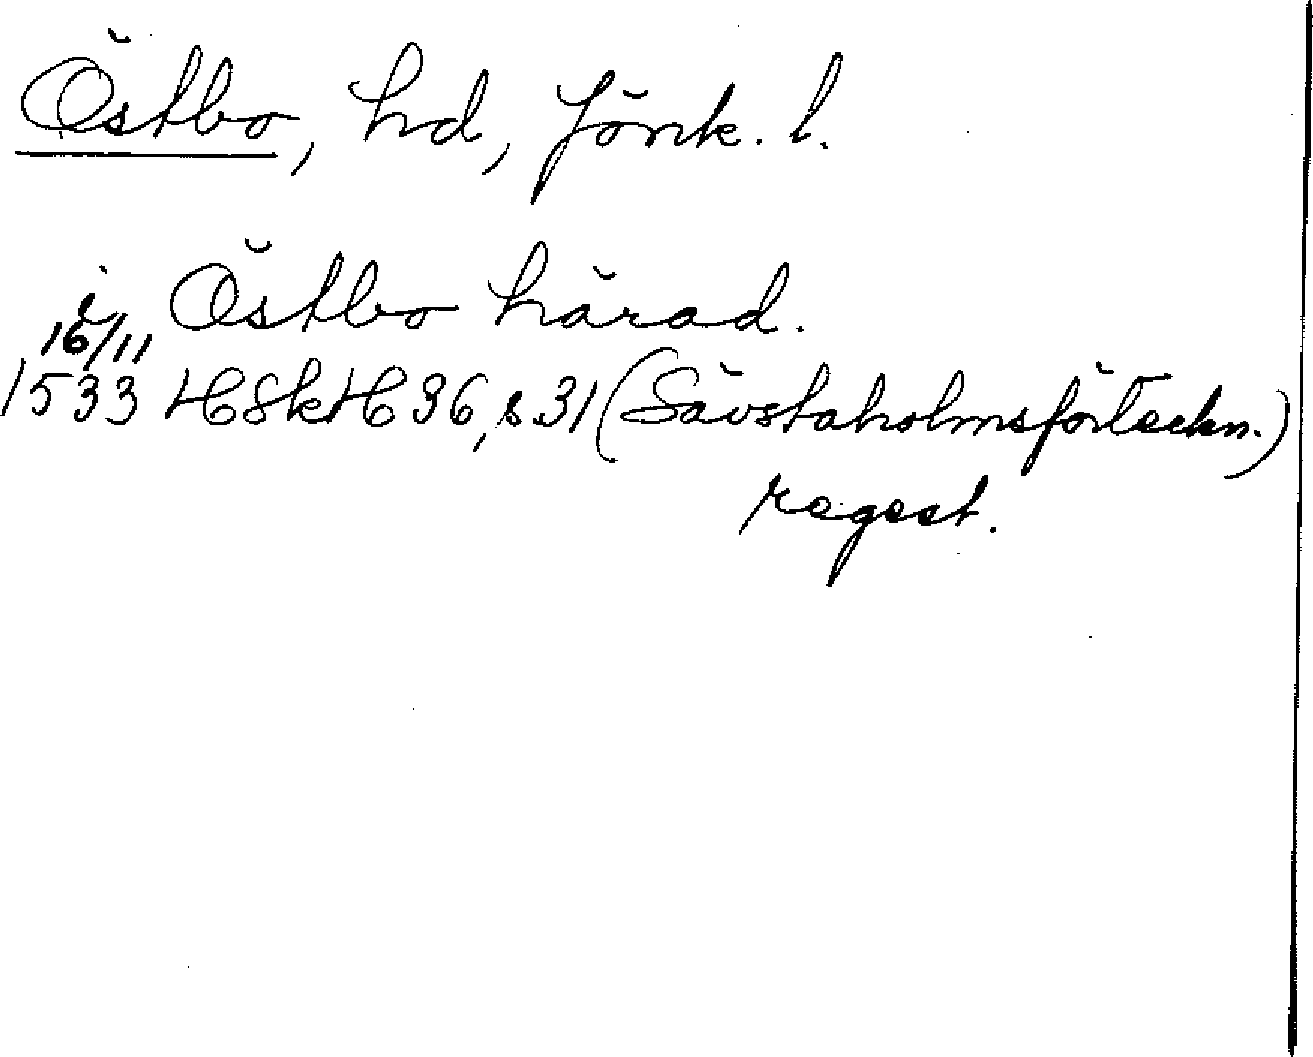 Östbo, hd, Jönk. l.
i Östbo härad.
16/11
1533 HSkH 36, s. 31 (Sävstaholmsförteckn.)
regest.